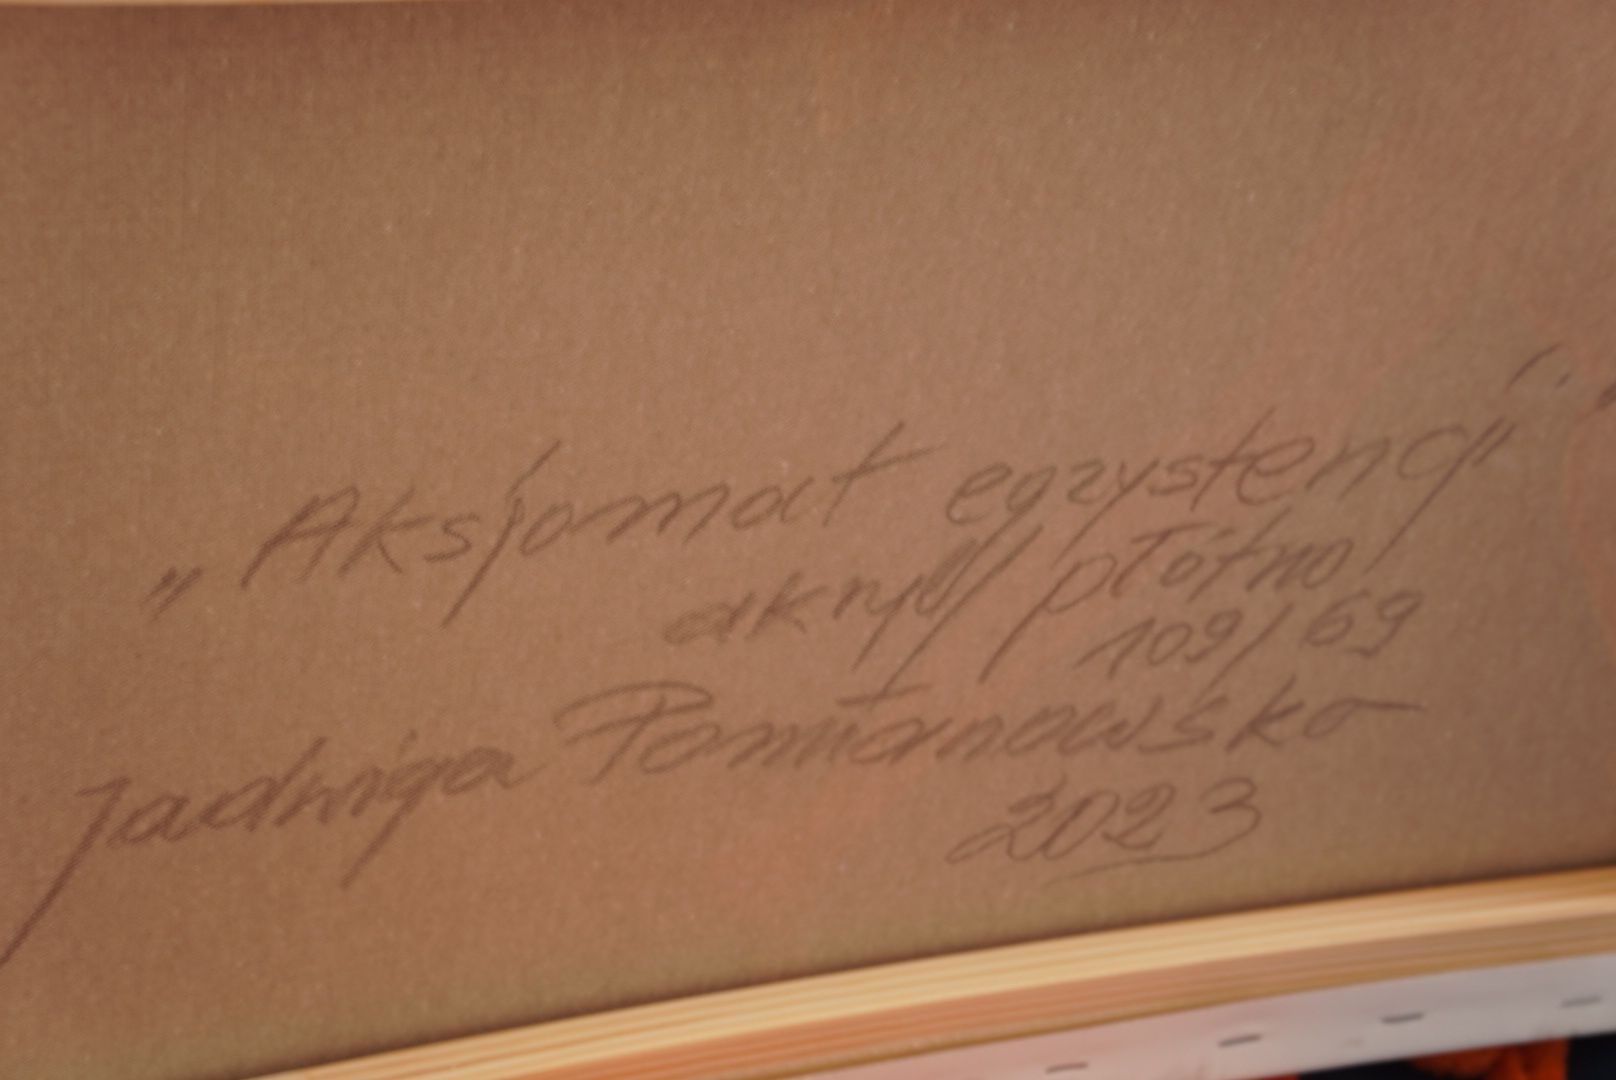 „Aksjomat egzystencji"
akryl/płótno
109/69
Jadwiga
2023